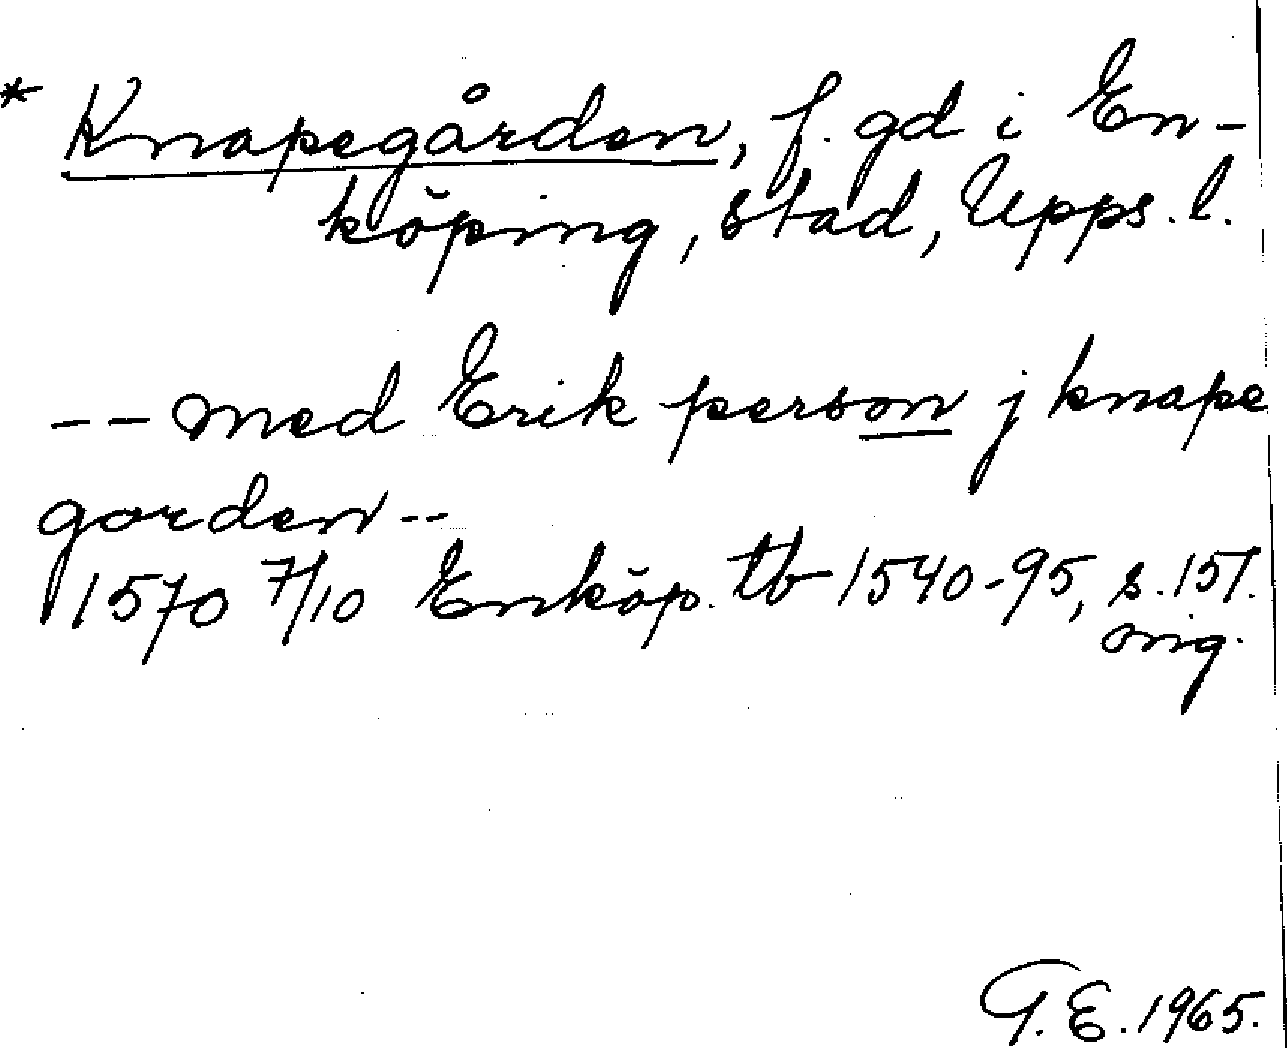 * Knapegården, f. gd i En-
köping, stad, Upps. l.
-- med Erik person j knape
gorden --
1570 7/10 Enköp. tb 1540-95, s. 151.
orig.
G. E. 1965.